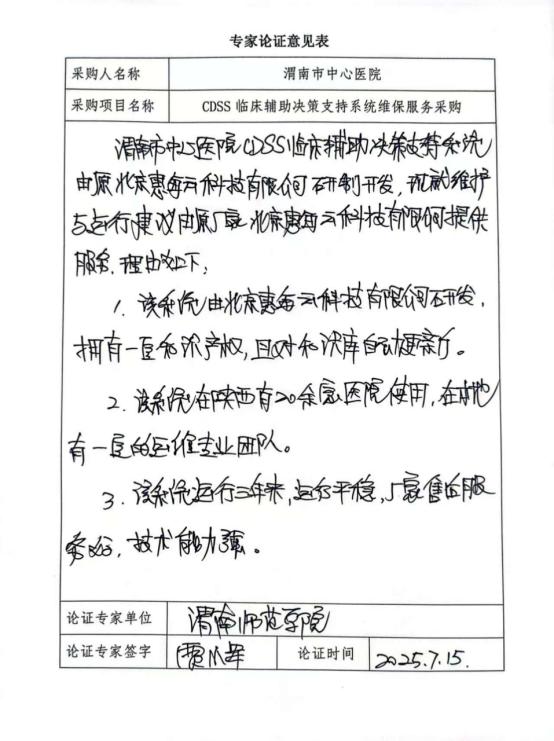 专家论证意见表
采购人名称 渭南市中心医院
采购项目名称 CDSS 临床辅助决策支持系统维保服务采购
渭南市中心医院CDSS临床辅助决策支持系统
由原北京惠每云科技有限公司研制开发，现就维护
与运行建议由原厂家北京惠每云科技有限公司提供
服务，理由如下：
1. 该系统由北京惠每云科技有限公司研发，
拥有一定知识产权，且对知识库自动更新。
2. 该系统在陕西有20余家医院使用，在本地
有一定的运维专业团队。
3. 该系统运行三年来，运行平稳，厂家售后服
务好，技术能力强。
论证专家单位 渭南师范学院
论证专家签字 论证时间 2025.7.15.